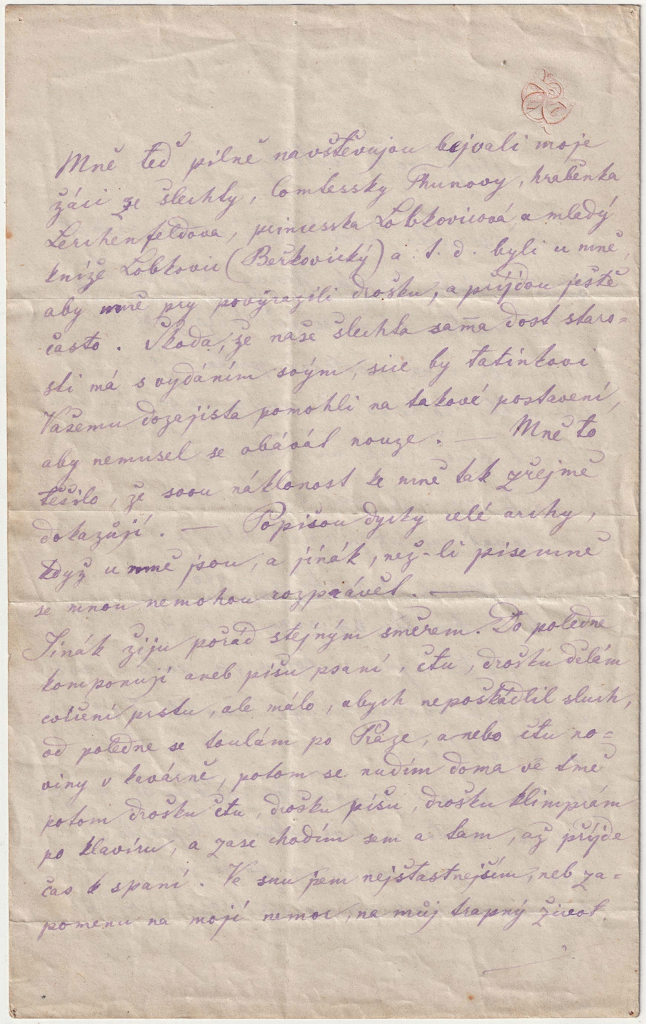 Mně teď pilně navštěvujou bejvalí moje
žáci ze šlechty, Comtessky Thunovy, hraběnka
Lerchenfeldova, princesska Lobkovicová a mladý
kníže Lobkovic (Beřkovický) a t. d. byli u mně,
aby mně prý povyrazili drošku, a přijdou ještě
často. Škoda, že naše šlechta sama dost staro-
sti má s vydáním svým, sice by tatínkovi
Vašemu dozajista pomohli na takové postavení,
aby nemusel se obávat nouze. — Mně to
těšilo, že svou náklonost ke mně tak zřejmě
dokazují. — Popisou dycky celé archy,
když u mně jsou, a jinák, než-li písemně
se mnou nemohou rozprávět. —
Jinák žiju pořád stejným směrem. Do poledne
komponuji aneb píšu psaní, čtu, drošku dělám
cvičení prstu, ale málo, abych nepoškádlil sluch,
od poledne se toulám po Praze, anebo čtu no-
viny v kavárně, potom se nudím doma ve tmě
potom drošku čtu, drošku píšu, drošku klimprám
po klavíru, a zase chodím sem a tam, až přijde
čas k spaní. Ve snu jsem nejšťastnejším, neb za-
pomenu na moji nemoc, na můj trapný život.